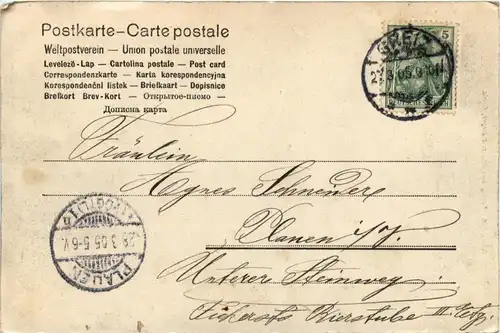 Postkarte – Carte postale
Weltpostverein – Union postale universelle
Levelező-Lap – Cartolina postale – Post card
Correspondenzkarte – Karta korespondencyjna
Korespondenční listek – Briefkaart – Dopisnice
Brefkort Brev-Kort – Открытое-письмо –
Дописна карта
5
GREIZ
Fräulein
Agnes Schneider
Plauen i/V.
Unterer Steinweg
Bierstube III. Etg.
(VOGTL.)
28.3.05.5-6V.
PLAUEN